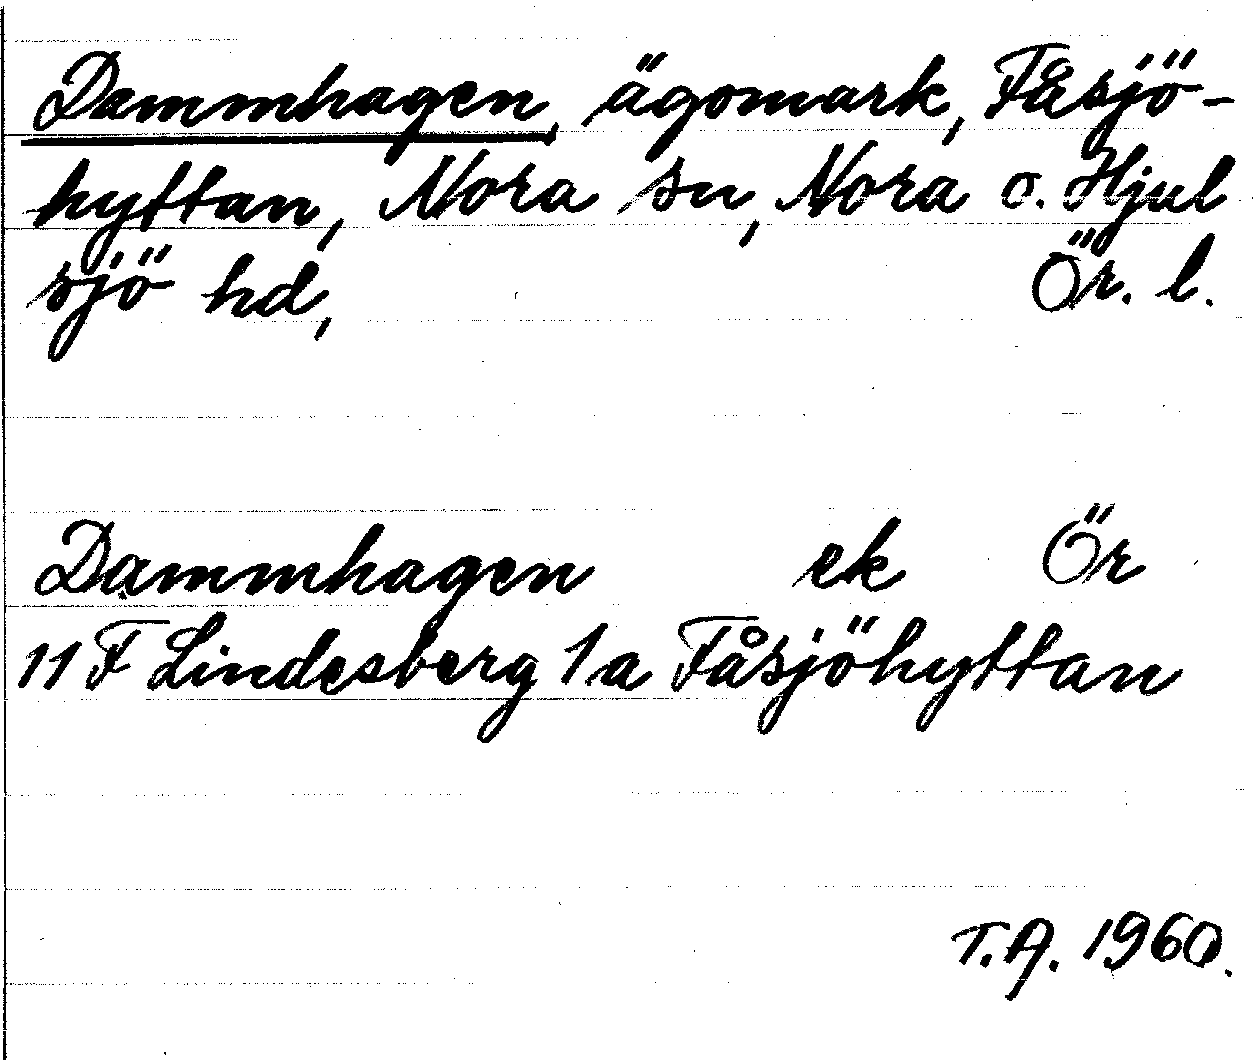 Dammhagen, ägomark, Fåsjö-
hyttan, Nora sn, Nora o. Hjul
sjö hd, Ör. l.
Dammhagen ek Ör
11 F Lindesberg 1 a Fåsjöhyttan
T.A. 1960.